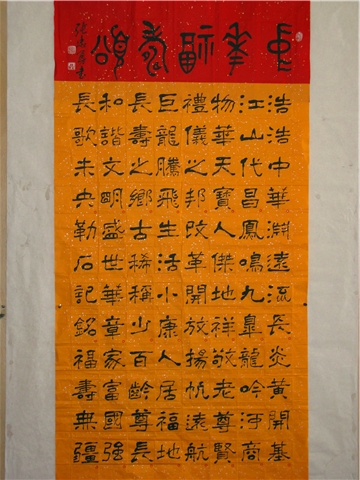 中華福壽頌
浩浩中華淵遠流長炎黃開基
江山代昌鳳鳴九臯龍吟河商
物華天寶人傑地祥敬老尊賢
禮儀之邦改革開放揚帆遠航
巨龍騰飛生活小康人居福地
長壽之鄉古稀稱少百齡尊長
和諧文明盛世華章家富國強
長歌未央勒石記銘福壽無疆